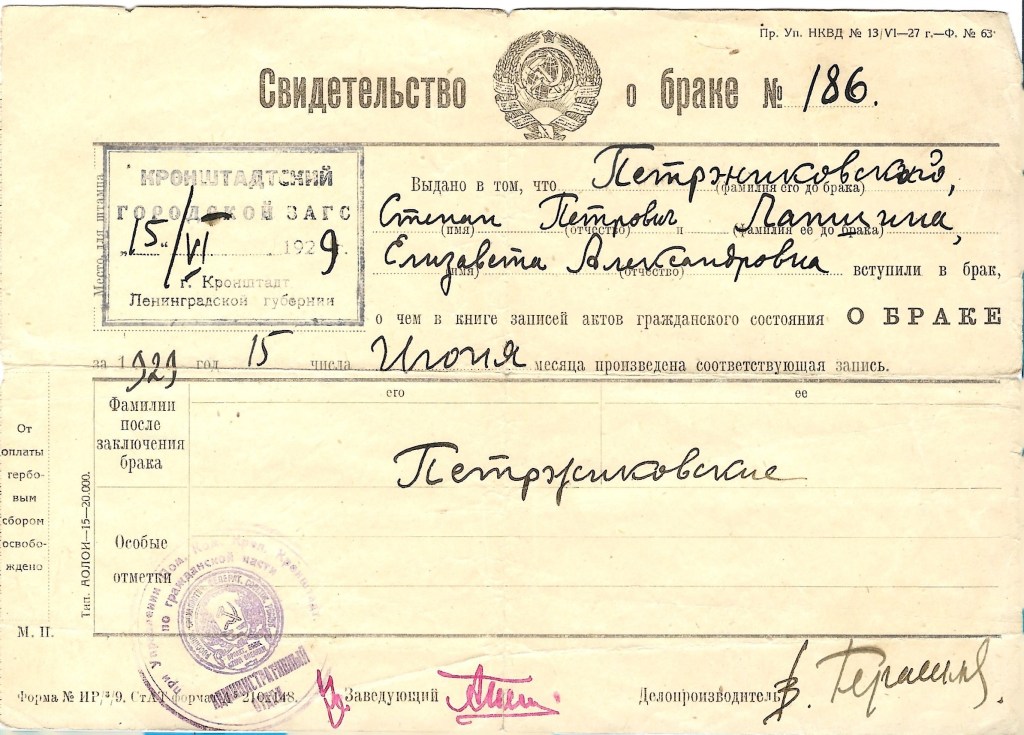 Пр. Уп. НКВД № 13/VI—27 г.—Ф. № 63
Свидетельство о браке № 186.
Место для штампа
КРОНШТАДТСКИЙ
ГОРОДСКОЙ ЗАГС
„15“/VI 1929 г.
г. Кронштадт
Ленинградской губернии
Выдано в том, что Петржиковский,
(фамилия его до брака)
Степан Петрович Лапшина,
(имя) (отчество) и (фамилия ее до брака)
Елизавета Александровна вступили в брак,
(имя) (отчество)
о чем в книге записей актов гражданского состояния О БРАКЕ
за 1929 год 15 числа Июня месяца произведена соответствующая запись.
его ее
Фамилии
после
заключения
брака
Петржиковские
Особые
отметки
От
оплаты
гербо-
вым
сбором
освобо-
ждено
Тип. АОЛОИ—15—20.000.
М. П.
по гражданской части
АДМИНИСТРАТИВНЫЙ
Форма № 210х148.
Заведующий
Делопроизводитель